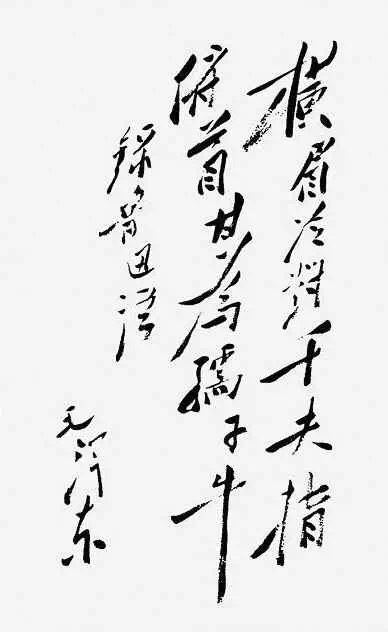 横眉冷對千夫指
俯首甘为孺子牛
錄魯迅語
毛泽东